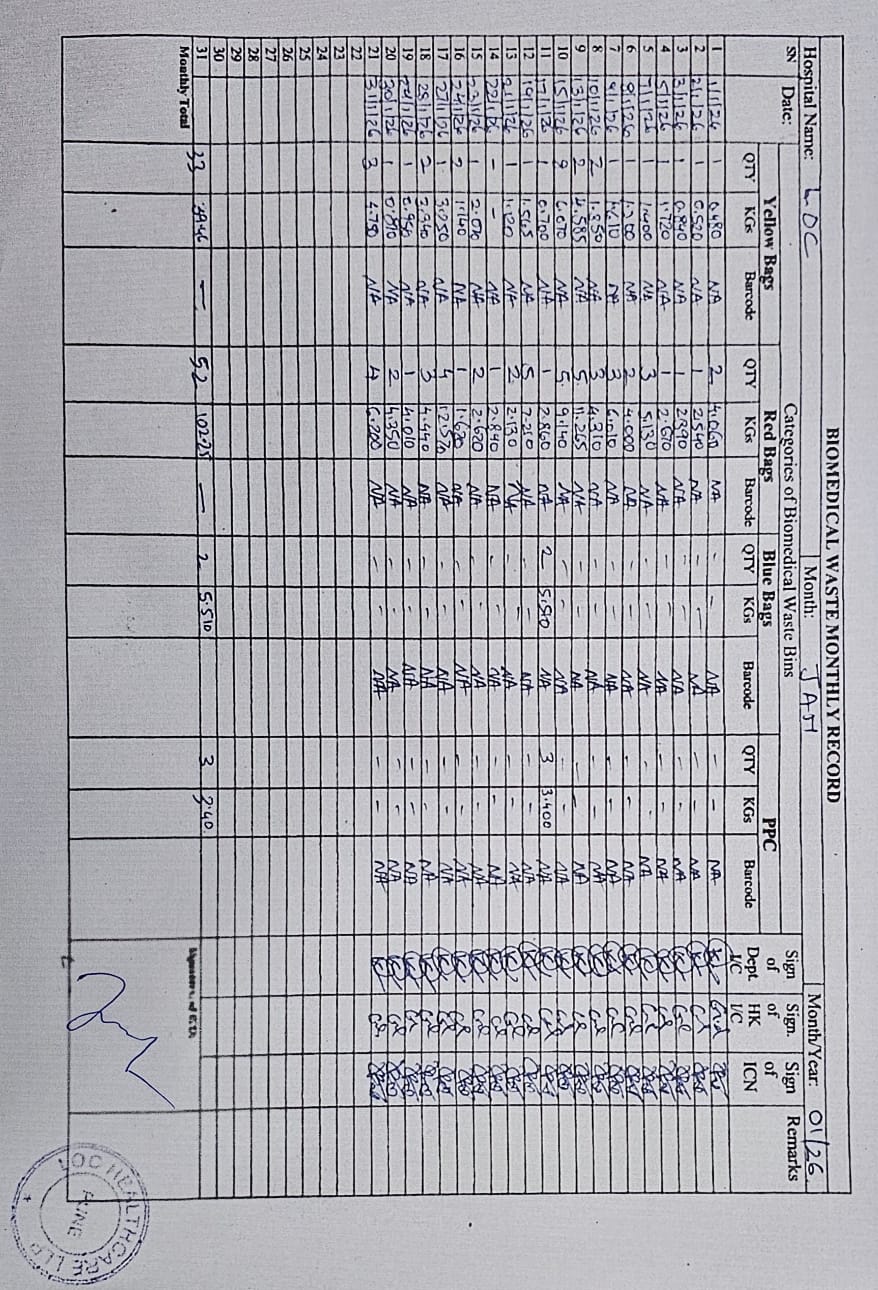 BIOMEDICAL WASTE MONTHLY RECORD
Hospital Name: LOC Month: JAN Month/Year: 01/26
SN Date: Categories of Biomedical Waste Bins Sign of Dept. I/C Sign. of HK I/C Sign of ICN Remarks
Yellow Bags Red Bags Blue Bags PPC
QTY KGs Barcode QTY KGs Barcode QTY KGs Barcode QTY KGs Barcode
1 1/1/26 1 0.480 NA 2 4.060 NA - - NA - - NA
2 2/1/26 1 0.520 NA 1 2.540 NA - - NA - - NA
3 3/1/26 1 0.840 NA 1 2.390 NA - - NA - - NA
4 5/1/26 1 1.720 NA 1 2.670 NA - - NA - - NA
5 7/1/26 1 1.400 NA 3 5.130 NA - - NA - - NA
6 8/1/26 1 1.200 NA 2 4.000 NA - - NA - - NA
7 9/1/26 1 NA 3 6.010 NA - - NA - - NA
8 10/1/26 2 1.850 NA 3 4.310 NA - - NA - - NA
9 13/1/26 2 4.585 NA 5 11.265 NA - - NA - - NA
10 15/1/26 9 6.070 NA 5 9.140 NA - - NA - - NA
11 17/1/26 1 0.700 NA 1 2.860 NA 2 5.510 NA 3 3.400 NA
12 19/1/26 1 1.565 NA 5 7.210 NA - - NA - - NA
13 21/1/26 1 1.120 NA 2 2.130 NA - - NA - - NA
14 22/1/26 - - NA 1 2.840 NA - - NA - - NA
15 23/1/26 1 2.070 NA 2 2.620 NA - - NA - - NA
16 24/1/26 2 1.140 NA 1 1.620 NA - - NA - - NA
17 27/1/26 1 3.050 NA 4 12.570 NA - - NA - - NA
18 28/1/26 2 3.340 NA 3 4.440 NA - - NA - - NA
19 29/1/26 1 0.950 NA 1 4.010 NA - - NA - - NA
20 30/1/26 1 0.810 NA 2 4.350 NA - - NA - - NA
21 31/1/26 3 4.750 NA 4 6.200 NA - - NA - - NA
22
23
24
25
26
27
28
29
30
31 33 39.46 — 52 102.25 — 2 5.510 3 3.40
Monthly Total
LOC HEALTHCARE LLP
PUNE